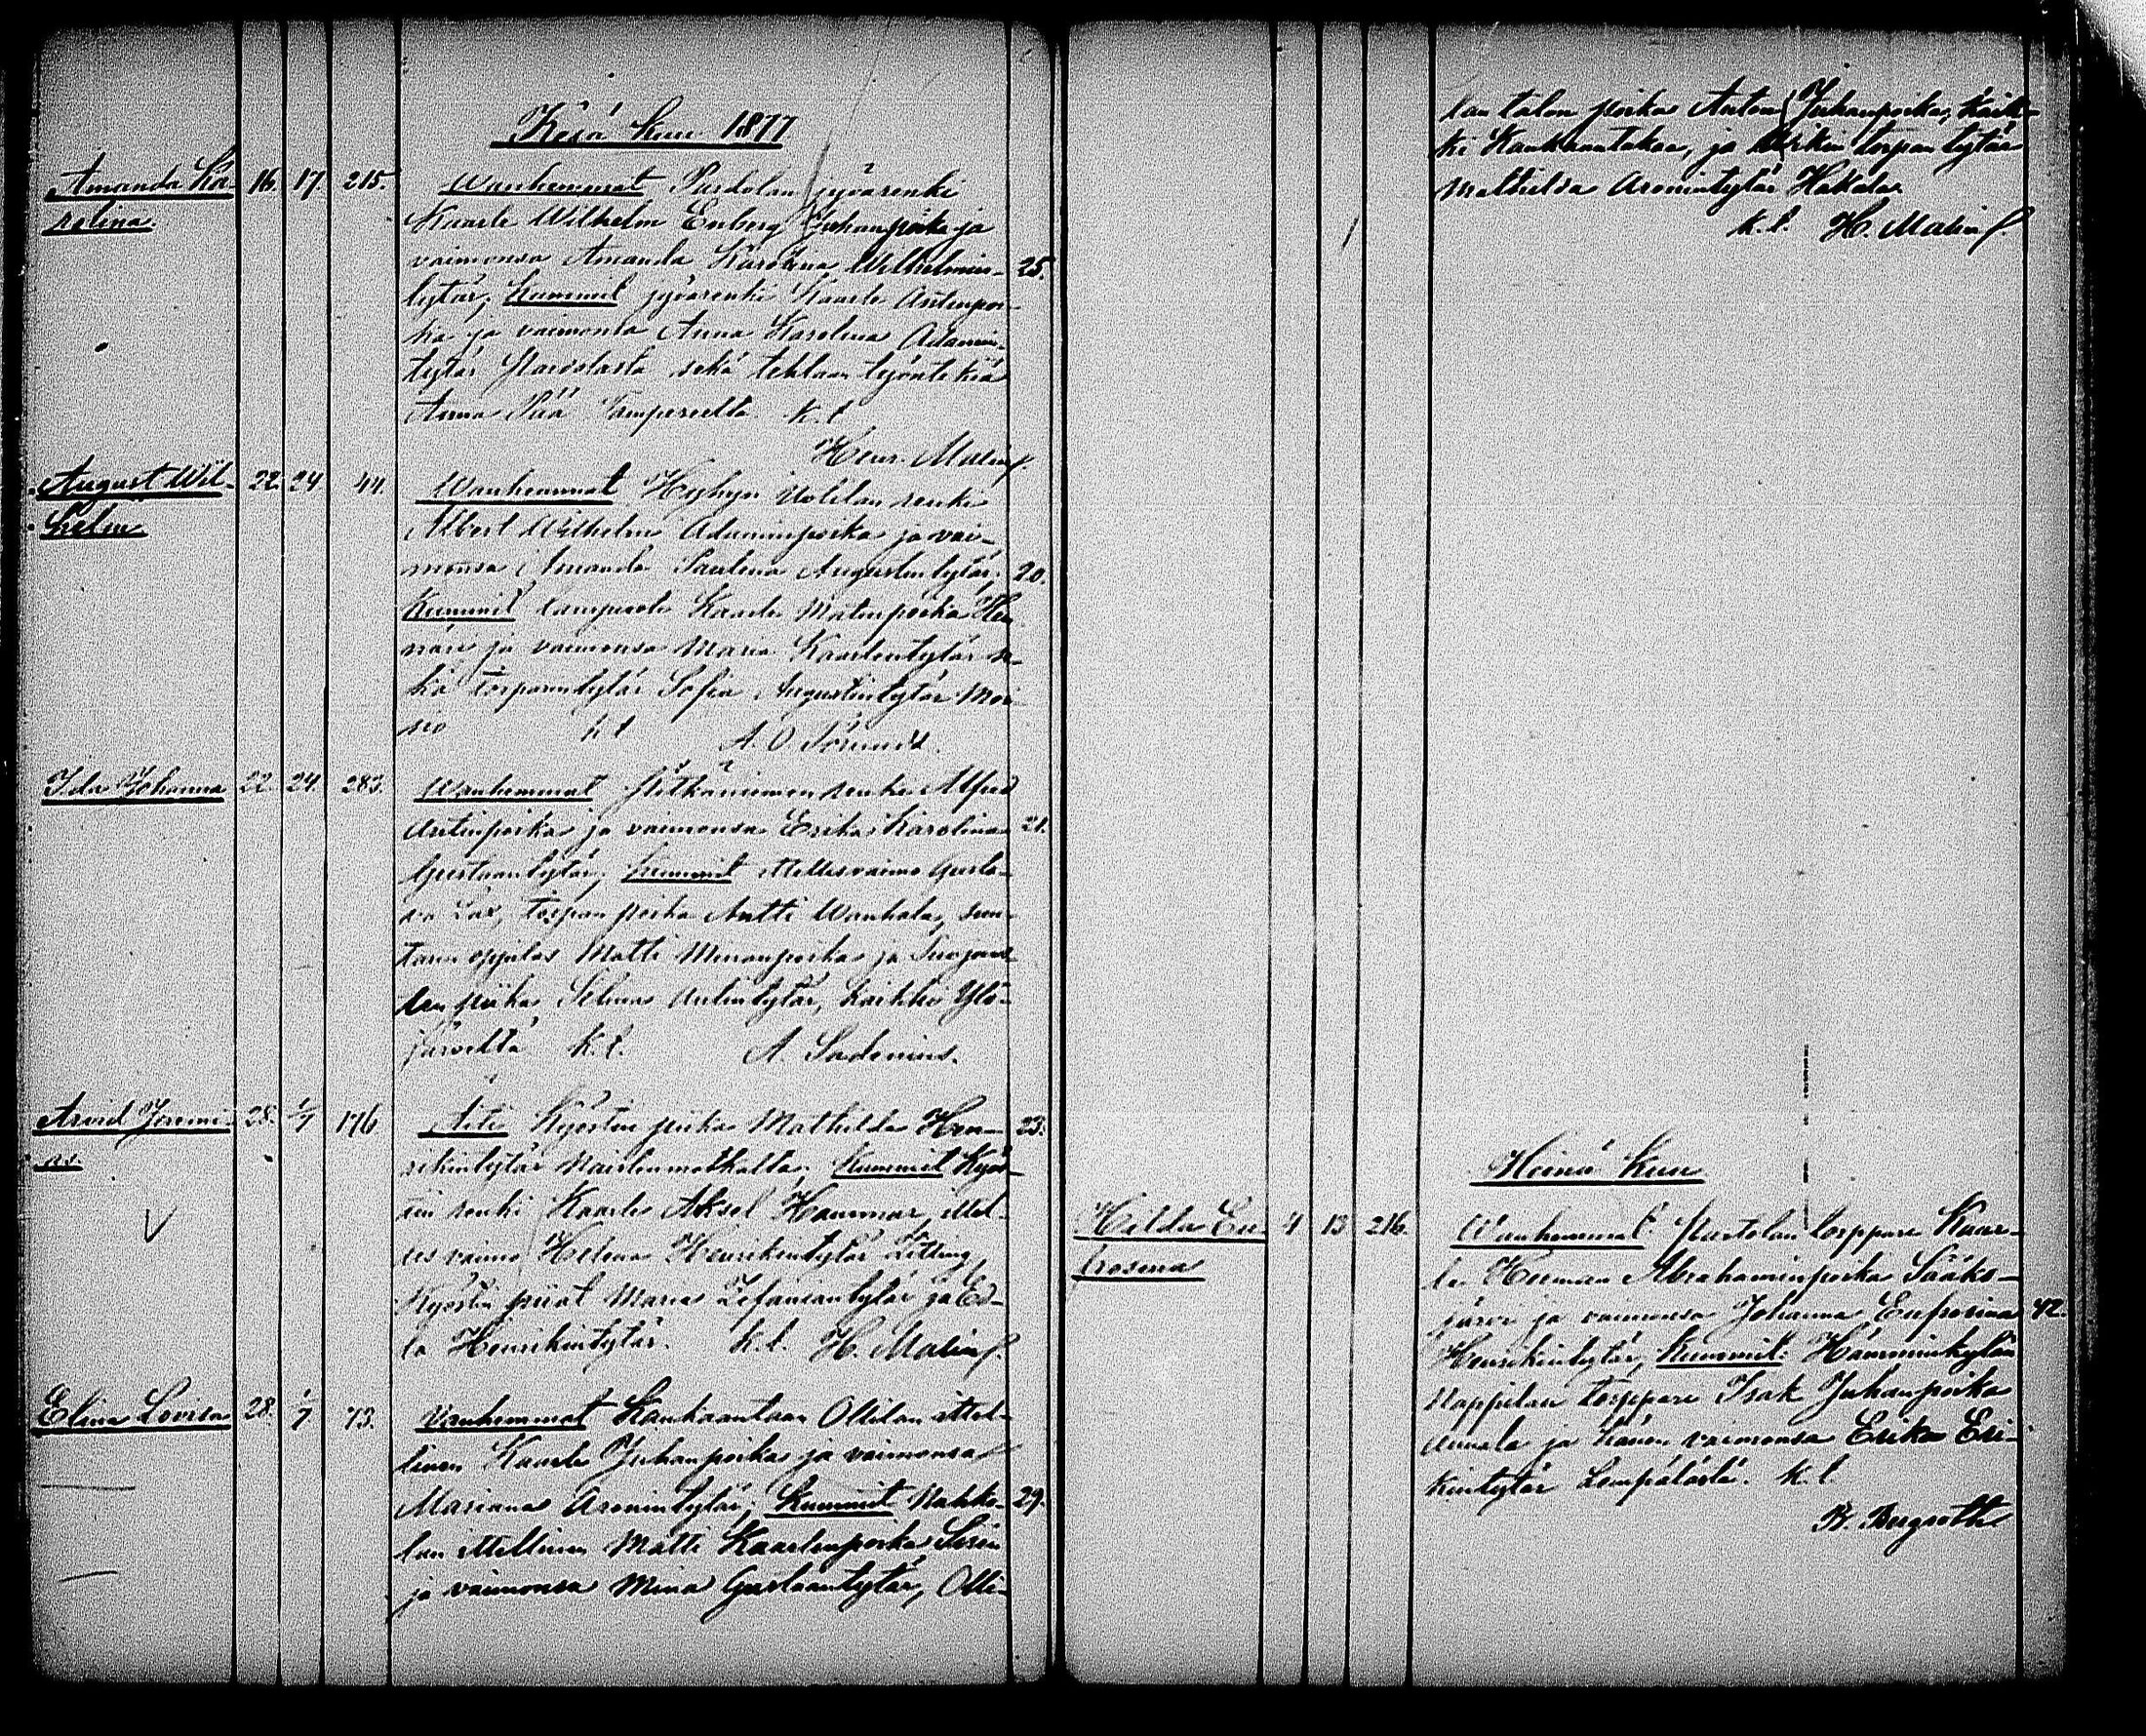 Kesä kuu 1877
Amanda Ka- 16. 17. 215. Wanhemmat Partolan jyvärenki
rolina.
Kaarle Wilhelm Enberg Juhanpoika ja
vaimonsa Amanda Karolina Wilhelmin- 25.
tytär; Kummit jyvärenki Kaarle Antinpoi-
ka ja vaimonsa Anna Karolina Adamin-
tytär Partolasta sekä tehtaan työntekiä
Anna Pää Tampereelta k. l.
Henr. Malin
August Wil- 22. 24 44. Wanhemmat Hyhyn Uotilan renki
helm.
Albert Wilhelm Adaminpoika ja vai-
monsa Amanda Paulina Augustintytär; 20.
Kummit lampuoti Kaarle Matinpoika
ja vaimonsa Maria Kaarlentytär se-
kä torpanntytär Sofia Augustintytär Moi-
sio k l
Ida Johanna 22. 24. 283. Wanhemmat Pitkäniemen renki Alfred
Antinpoika ja vaimonsa Erika Karolina 21.
Gustaantytär; Kummit itellisvaimo Gusta-
va Lax, torpan poika Antti Wanhala, sun-
tarin oppilas Matti Minanpoika ja
piika Selma Antintytär, kaikki Ylö-
järveltä k. l. A. Sadenius.
Arvid Jeremi- 28. 1/7 176 Äiti Kyöstin piika Mathilda Hen- 23.
as.
rikintytär Naistenmatkalta; Kummit Kyös-
tin renki Kaarle Aksel Hammar, itel-
lis vaimo Helena Henrikintytär Litting,
Kyöstin piiat Maria Zefaniantytär ja Ed-
la Henrikintytär. k. l. H. Malin
Elina Lovisa 28. 1/7 73. Vanhemmat Kankaantaan Ollilan itel-
linen Kaarle Juhanpoika ja vaimonsa
Mariana Aronintytär; Kummit Nakko- 29.
lan itellinen Matti Kaarlenpoika Sirén
ja vaimonsa Mina Gustaantytär, Olli-
lan talon poika Anton Juhanpoika, kaik-
ki Kankaantakaa, ja torpan tytär
Mathilda Aronintytär Hakala.
k. l. H. Malin
Heinä kuu
Hilda Eu- 4 13 216. Wanhemmat: Partolan torppare Kaar-
frosina
le Herman Abrahaminpoika Sääks-
järvi ja vaimonsa Johanna Eufrosina 42.
Henrikintytär; Kummit: Hämmienkylän
Nappilan torppare Isak Juhanpoika
Annala ja hänen vaimonsa Erika Eri-
kintytär Lempäälästä. k. l
B. Bergroth